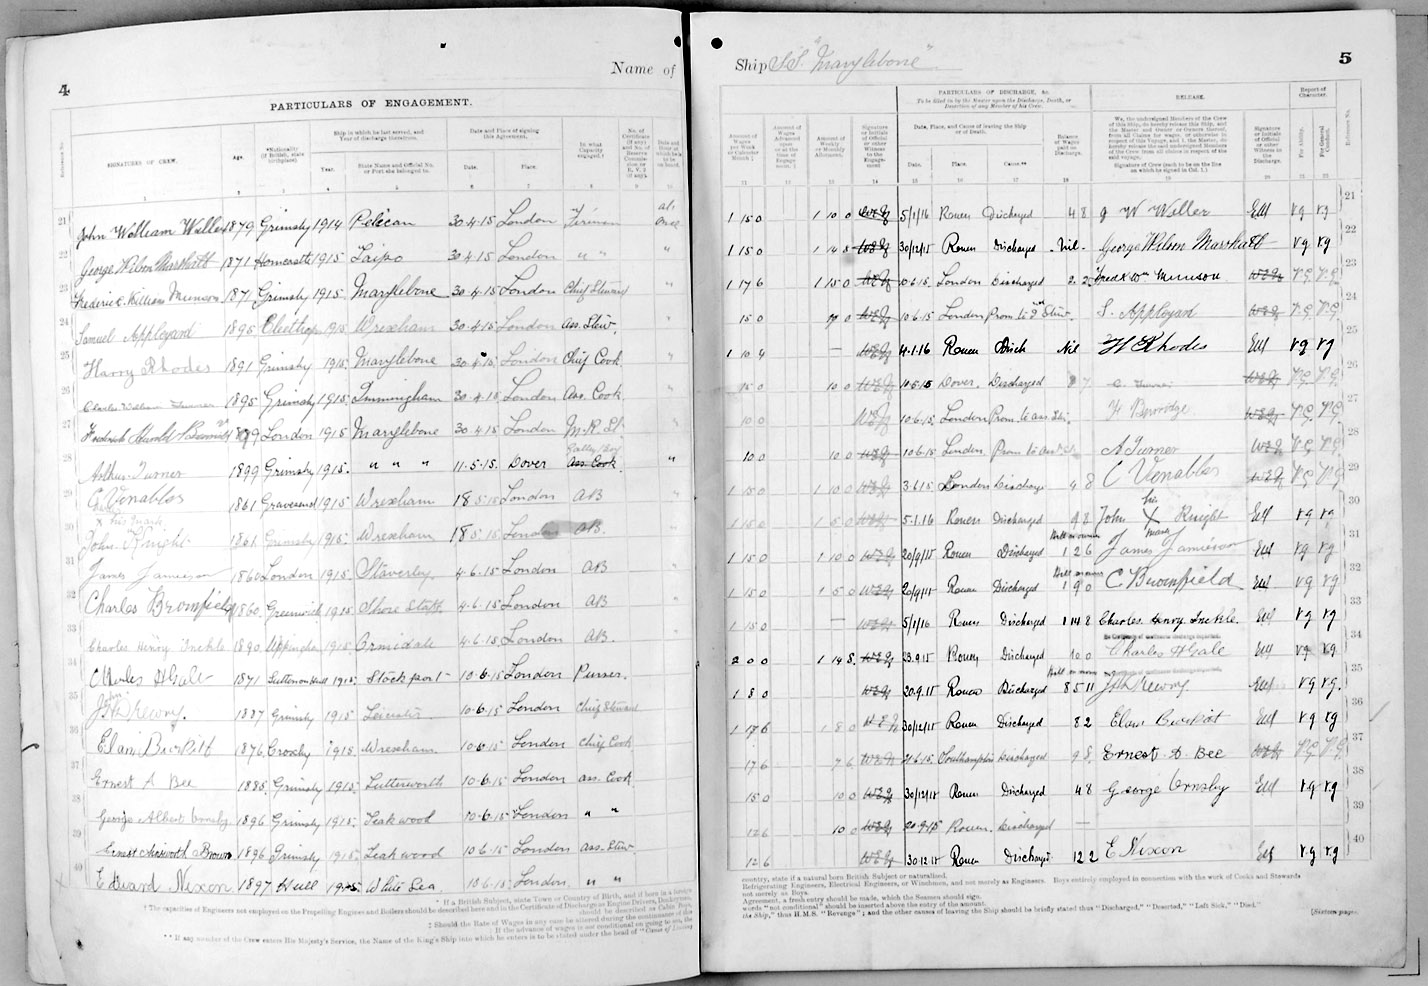 4
Name of
PARTICULARS OF ENGAGEMENT.
Reference No.
SIGNATURES OF CREW.
Age.
*Nationality (If British, state birthplace)
Ship in which he last served, and Year of discharge therefrom.
Year.
State Name and Official No. or Port she belonged to.
Date and Place of signing this Agreement.
Date.
Place.
In what Capacity engaged.†
No. of Certificate (if any)
1 2 3 4 5 6 7 8 9 10
21 John William Waller 1879 Grimsby 1914 Pelican 30.4.15 London Firemen at once
22 George Wilson Marshall 1871 Horncastle 1915 Taipo 30.4.15 London " " "
23 Frederick William Munson 1871 Grimsby 1915 Marylebone 30.4.15 London Chief Steward "
24 Samuel Appleyard 1895 Cleethorp 1915 Wrexham 30.4.15 London Ass. Stew. "
25 Harry Rhodes 1891 Grimsby 1915 Marylebone 30.4.15 London Chief Cook "
26 Charles William Turner 1895 Grimsby 1915 Immingham 30.4.15 London Ass. Cook "
27 Frederick Harold London 1915 Marylebone 30.4.15 London "
28 Arthur Turner 1899 Grimsby 1915. " " " 11.5.15. Dover Galley Boy Ass. Cook "
29 C Venables 1861 Gravesend 1915 Wrexham 18.5.15 London AB "
30 John X his mark Knight 1861 Grimsby 1915 Wrexham 18.5.15 London AB. "
31 James Jamieson 1860 London 1915 Staverley 4.6.15 London AB "
32 Charles Brownfield 1860 Greenwich 1915 4.6.15 London AB "
33 Charles Henry Inckle 1890 Uppingham 1915 Ormidale 4.6.15 London AB. "
34 Charles H Gale 1871 Sutton on Hull 1915. Stockport 10.6.15 London Purser.
35 1887 Grimsby 1915 Leicester 10.6.15 London Chief Steward
36 Elam Burkitt 1876 Croxby 1915 Wrexham 10.6.15 London Chief Cook
37 Ernest A Bee 1885 Grimsby 1915 Lutterworth 10.6.15 London ass. Cook
38 George Albert Ornsby 1896 Grimsby 1915. Leakwood 10.6.15 London " "
39 Ernest Ainsworth Brown 1896 Grimsby 1915 Leakwood 10.6.15 London ass. Stew
40 Edward Nixon 1897 Hull 1915 White Sea 10.6.15 London. " "
* If a British Subject, state Town or Country of Birth, and if born in a foreign
† The capacities of Engineers not employed on the Propelling Engines and Boilers should be described here and in the Certificate of Discharge as Engine Drivers, Donkeymen,
should be described as Cabin Boys,
‡ Should the Rate of Wages in any case be altered during the continuance of the
If the advance of wages is not conditional on going to sea, the
** If any member of the Crew enters His Majesty's Service, the Name of the King's Ship into which he enters is to be stated under the head of "Cause of Leaving
Ship S.S. "Marylebone"
5
PARTICULARS OF DISCHARGE, &c.
To be filled in by the Master upon the Discharge, Death, or Desertion of any Member of his Crew.
RELEASE.
Report of Character.
Amount of Wages per Week or Calendar Month ‡
Amount of Wages Advanced upon or at the time of Engagement.
Amount of Weekly or Monthly Allotment.
Signature or Initials of Official or other Witness to the Engagement
Date, Place, and Cause of leaving the Ship or of Death.
Date.
Place.
Cause.**
Balance of Wages paid on Discharge.
We, the undersigned Members of the Crew of this Ship, do hereby release this Ship, and the Master and Owner or Owners thereof, from all Claims for wages or otherwise in respect of this Voyage, and I, the Master, do hereby release the undersigned Members of the Crew from all claims in respect of the said voyage.
Signature of Crew (each to be on the line on which he signed in Col. 1.)
Signature or Initials of Official or other Witness to the Discharge.
For Ability.
For General Conduct.
Reference No.
11 12 13 14 15 16 17 18 19 20 21 22
1 15 0 1 10 0 5/1/16 Rouen Discharged 4 8 J W Waller vg vg 21
1 15 0 1 14 8 30/12/15 Rouen Discharged Nil George Wilson Marshall vg vg 22
1 17 6 1 15 0 10.6.15. London Discharged 2 2 Fredk Wm Munson V.G V.G 23
15 0 10.6.15 London Prom to 2nd Stew. S. Appleyard V.G V.G 24
1 10 4 — 4.1.16 Rouen Disch Nil H Rhodes vg vg 25
15 0 10 0 10.5.15 Dover. Discharged 7 C. Turner V.G V.G 26
10 0 10.6.15. London Prom. to ass. Stw. F Berridge V.G V.G 27
10 0 10 0 10.6.15 London. Prom to A Turner V.G V.G 28
1 15 0 1 10 0 3.6.15 London Discharge 4 8 C Venables V.G V.G 29
1 15 0 1 5 0 5.1.16 Rouen Discharged 9 8 John his X mark Knight vg vg 30
1 15 0 1 10 0 20/9/15 Rouen Discharged 1 2 6 James Jamieson vg vg 31
1 15 0 1 5 0 20/9/15 Rouen Discharged 1 9 0 C Brownfield vg vg 32
1 15 0 — 5/1/16 Rouen Discharged 1 14 8 Charles Henry Inckle. vg vg 33
2 0 0 1 14 8. 23.9.15 Rouen Discharged 10 0 Charles H Gale vg vg 34
1 8 0 20.9.15 Rouen Discharged 8 5 11 vg vg. 35
1 17 6 1 8 0 30/12/15 Rouen Discharged 8 2 Elam Burkitt vg vg 36
17 6 7 6 Southampton Discharged 9 8 Ernest A. Bee V.G V.G 37
15 0 10 0 30/12/15 Rouen Discharged 4 8 George Ornsby vg vg 38
12 6 10 0 20.9.15 Rouen. Discharged — 39
12 6 30.12.15 Rouen Discharged 12 2 E Nixon vg vg 40
country, state if a natural born British Subject or naturalised.
Refrigerating Engineers, Electrical Engineers, or Winchmen, and not merely as Engineers. Boys entirely employed in connection with the work of Cooks and Stewards
not merely as Boys.
Agreement, a fresh entry should be made, which the Seamen should sign.
words "not conditional" should be inserted above the entry of the amount.
the Ship," thus H.M.S. "Revenge"; and the other causes of leaving the Ship should be briefly stated thus "Discharged," "Deserted," "Left Sick," "Died."
(Sixteen pages.